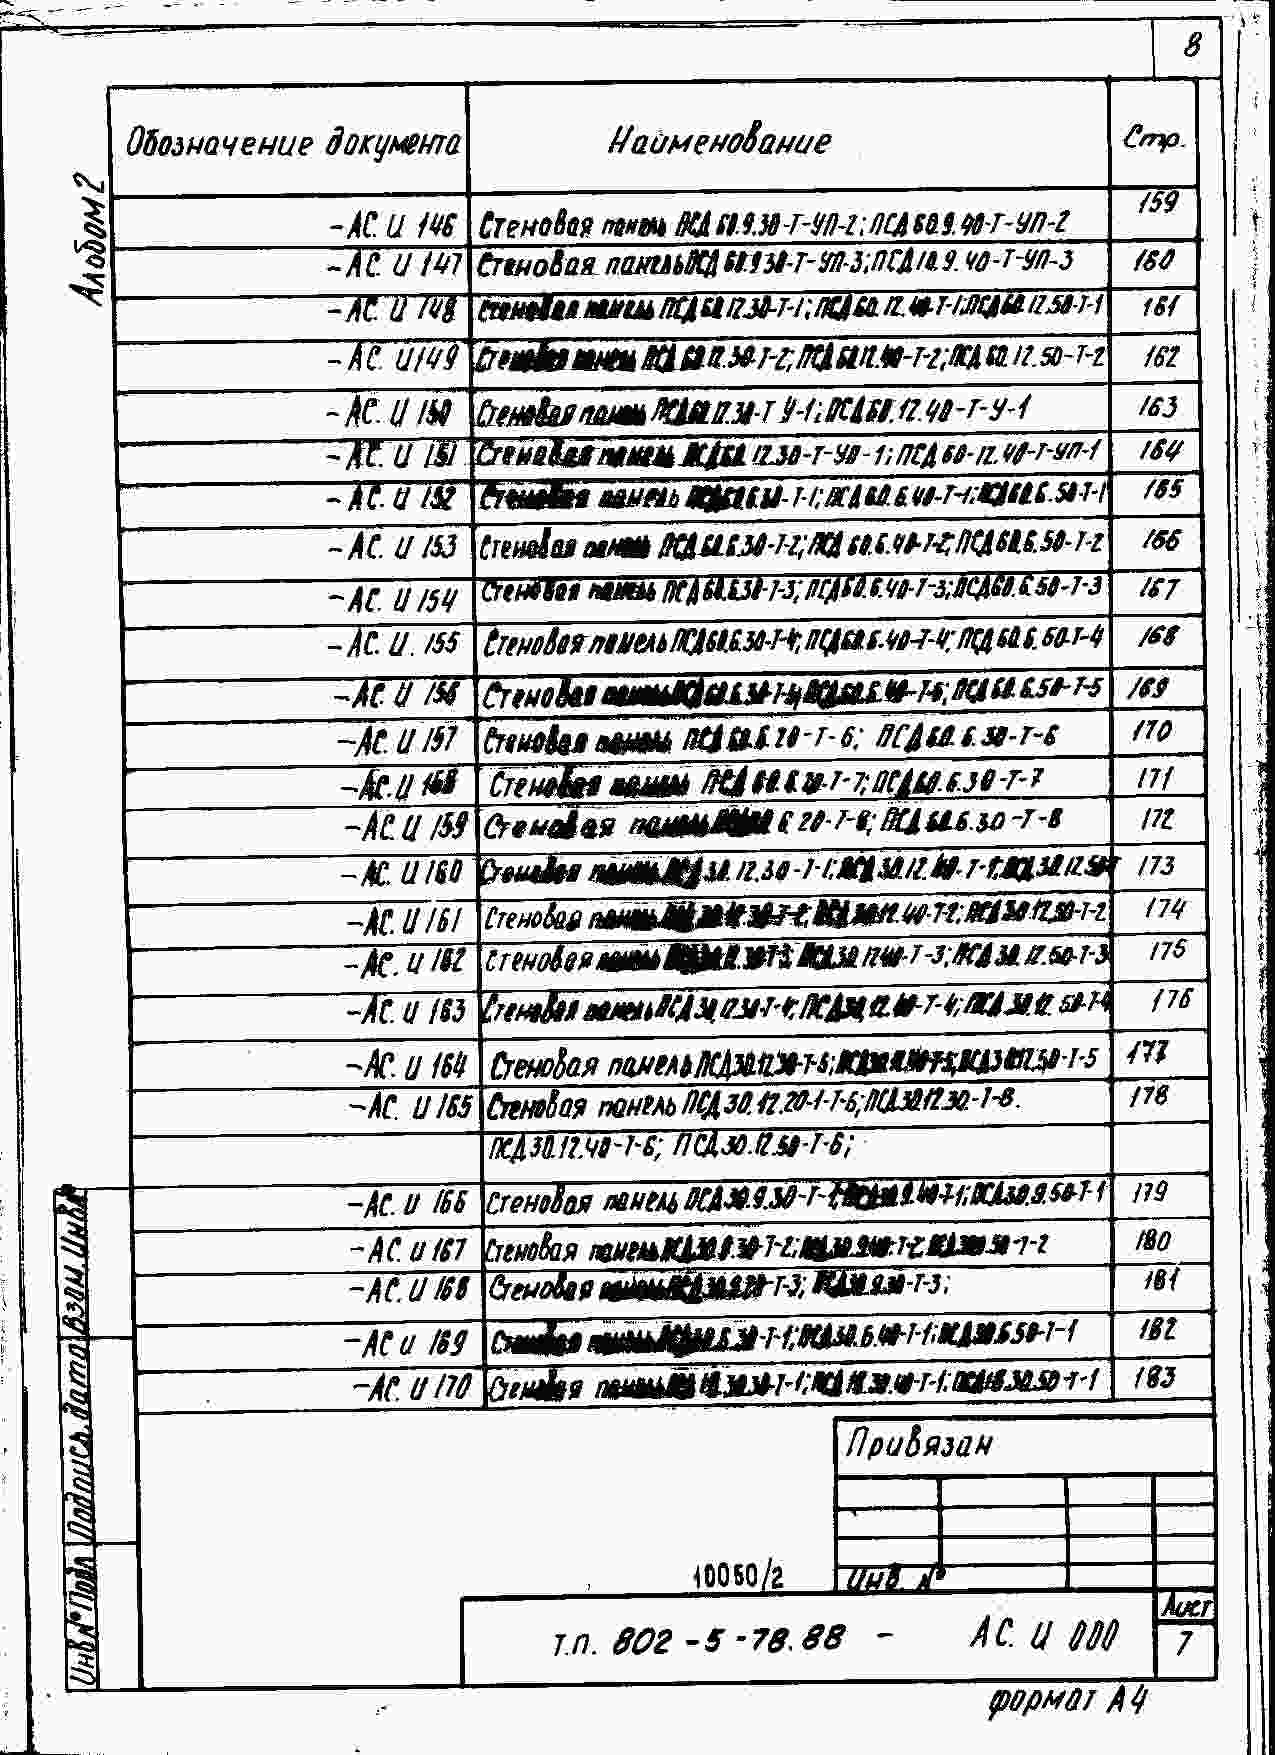 8
Альбом 2
Обозначение документа Наименование Стр.
-АС. И 146 Стеновая панель ПСД 60.9.30-Т-УП-2; ПСД 60.9.40-Т-УП-2 159
-АС. И 147 Стеновая панель ПСД 60.9.30-Т-УП-3; ПСД 10.9.40-Т-УП-3 160
-АС. И 148 Стеновая панель ПСД 60.12.30-Т-1; ПСД 60.12.40-Т-1; ПСД 60.12.50-Т-1 161
-АС. И 149 Стеновая панель ПСД 60.12.30-Т-2; ПСД 60.12.40-Т-2; ПСД 60.12.50-Т-2 162
-АС. И 150 Стеновая панель ПСД 60.12.30-Т У-1; ПСД 60.12.40-Т-У-1 163
-АС. И 151 Стеновая панель ПСД 60.12.30-Т-УП-1; ПСД 60-12.40-Т-УП-1 164
-АС. И 152 Стеновая панель ПСД 60.6.30-Т-1; ПСД 60.6.40-Т-1; ПСД 60.6.50-Т-1 165
-АС. И 153 Стеновая панель ПСД 60.6.30-Т-2; ПСД 60.6.40-Т-2; ПСД 60.6.50-Т-2 166
-АС. И 154 Стеновая панель ПСД 60.6.30-Т-3; ПСД 60.6.40-Т-3; ПСД 60.6.50-Т-3 167
-АС. И. 155 Стеновая панель ПСД 60.6.30-Т-4; ПСД 60.6.40-Т-4; ПСД 60.6.50-Т-4 168
-АС. И 156 Стеновая панель ПСД 60.6.40-Т-5; ПСД 60.6.50-Т-5 169
-АС. И 157 Стеновая панель ПСД 60.6.20-Т-6; ПСД 60.6.30-Т-6 170
-АС. И 158 Стеновая панель ПСД 60.6.20-Т-7; ПСД 60.6.30-Т-7 171
-АС. И 159 Стеновая панель 6 20-Т-8; ПСД 60.6.30-Т-8 172
-АС. И 160 Стеновая панель ПСД 30.12.30-Т-1; ПСД 30.12.40-Т-1; ПСД 30.12.50-Т 173
-АС. И 161 Стеновая панель ПСД 30.12.30-Т-2; ПСД 30.12.40-Т-2; ПСД 30.12.50-Т-2 174
-АС. И 162 Стеновая панель ПСД 30.12.40-Т-3; ПСД 30.12.50-Т-3 175
-АС. И 163 Стеновая панель ПСД 30.12.30-Т-4; ПСД 30.12.40-Т-4; ПСД 30.12.50-Т-4 176
-АС. И 164 Стеновая панель ПСД 30.12.30-Т-5; ПСД 30.12.50-Т-5 177
-АС. И 165 Стеновая панель ПСД 30.12.20-1-Т-6; ПСД 30.12.30-Т-6. 178
ПСД 30.12.40-Т-6; ПСД 30.12.50-Т-6;
-АС. И 166 Стеновая панель ПСД 30.9.30-Т-1; ПСД 30.9.40-Т-1; ПСД 30.9.50-Т-1 179
-АС. И 167 Стеновая панель ПСД 30.9.30-Т-2; 180
-АС. И 168 Стеновая панель ПСД 30.9.20-Т-3; ПСД 30.9.30-Т-3; 181
-АС И 169 Стеновая панель ПСД 30.6.30-Т-1; ПСД 30.6.40-Т-1; ПСД 30.6.50-Т-1 182
-АС. И 170 Стеновая панель ПСД 18.30.30-Т-1; ПСД 18.30.40-Т-1; ПСД 18.30.50-Т-1 183
Инв.№ Подл Подпись, дата Взам. Инв.№
Привязан
Инв. №
10050/2
Т.П. 802-5-78.88 - АС. И 000
Лист
7
формат А4